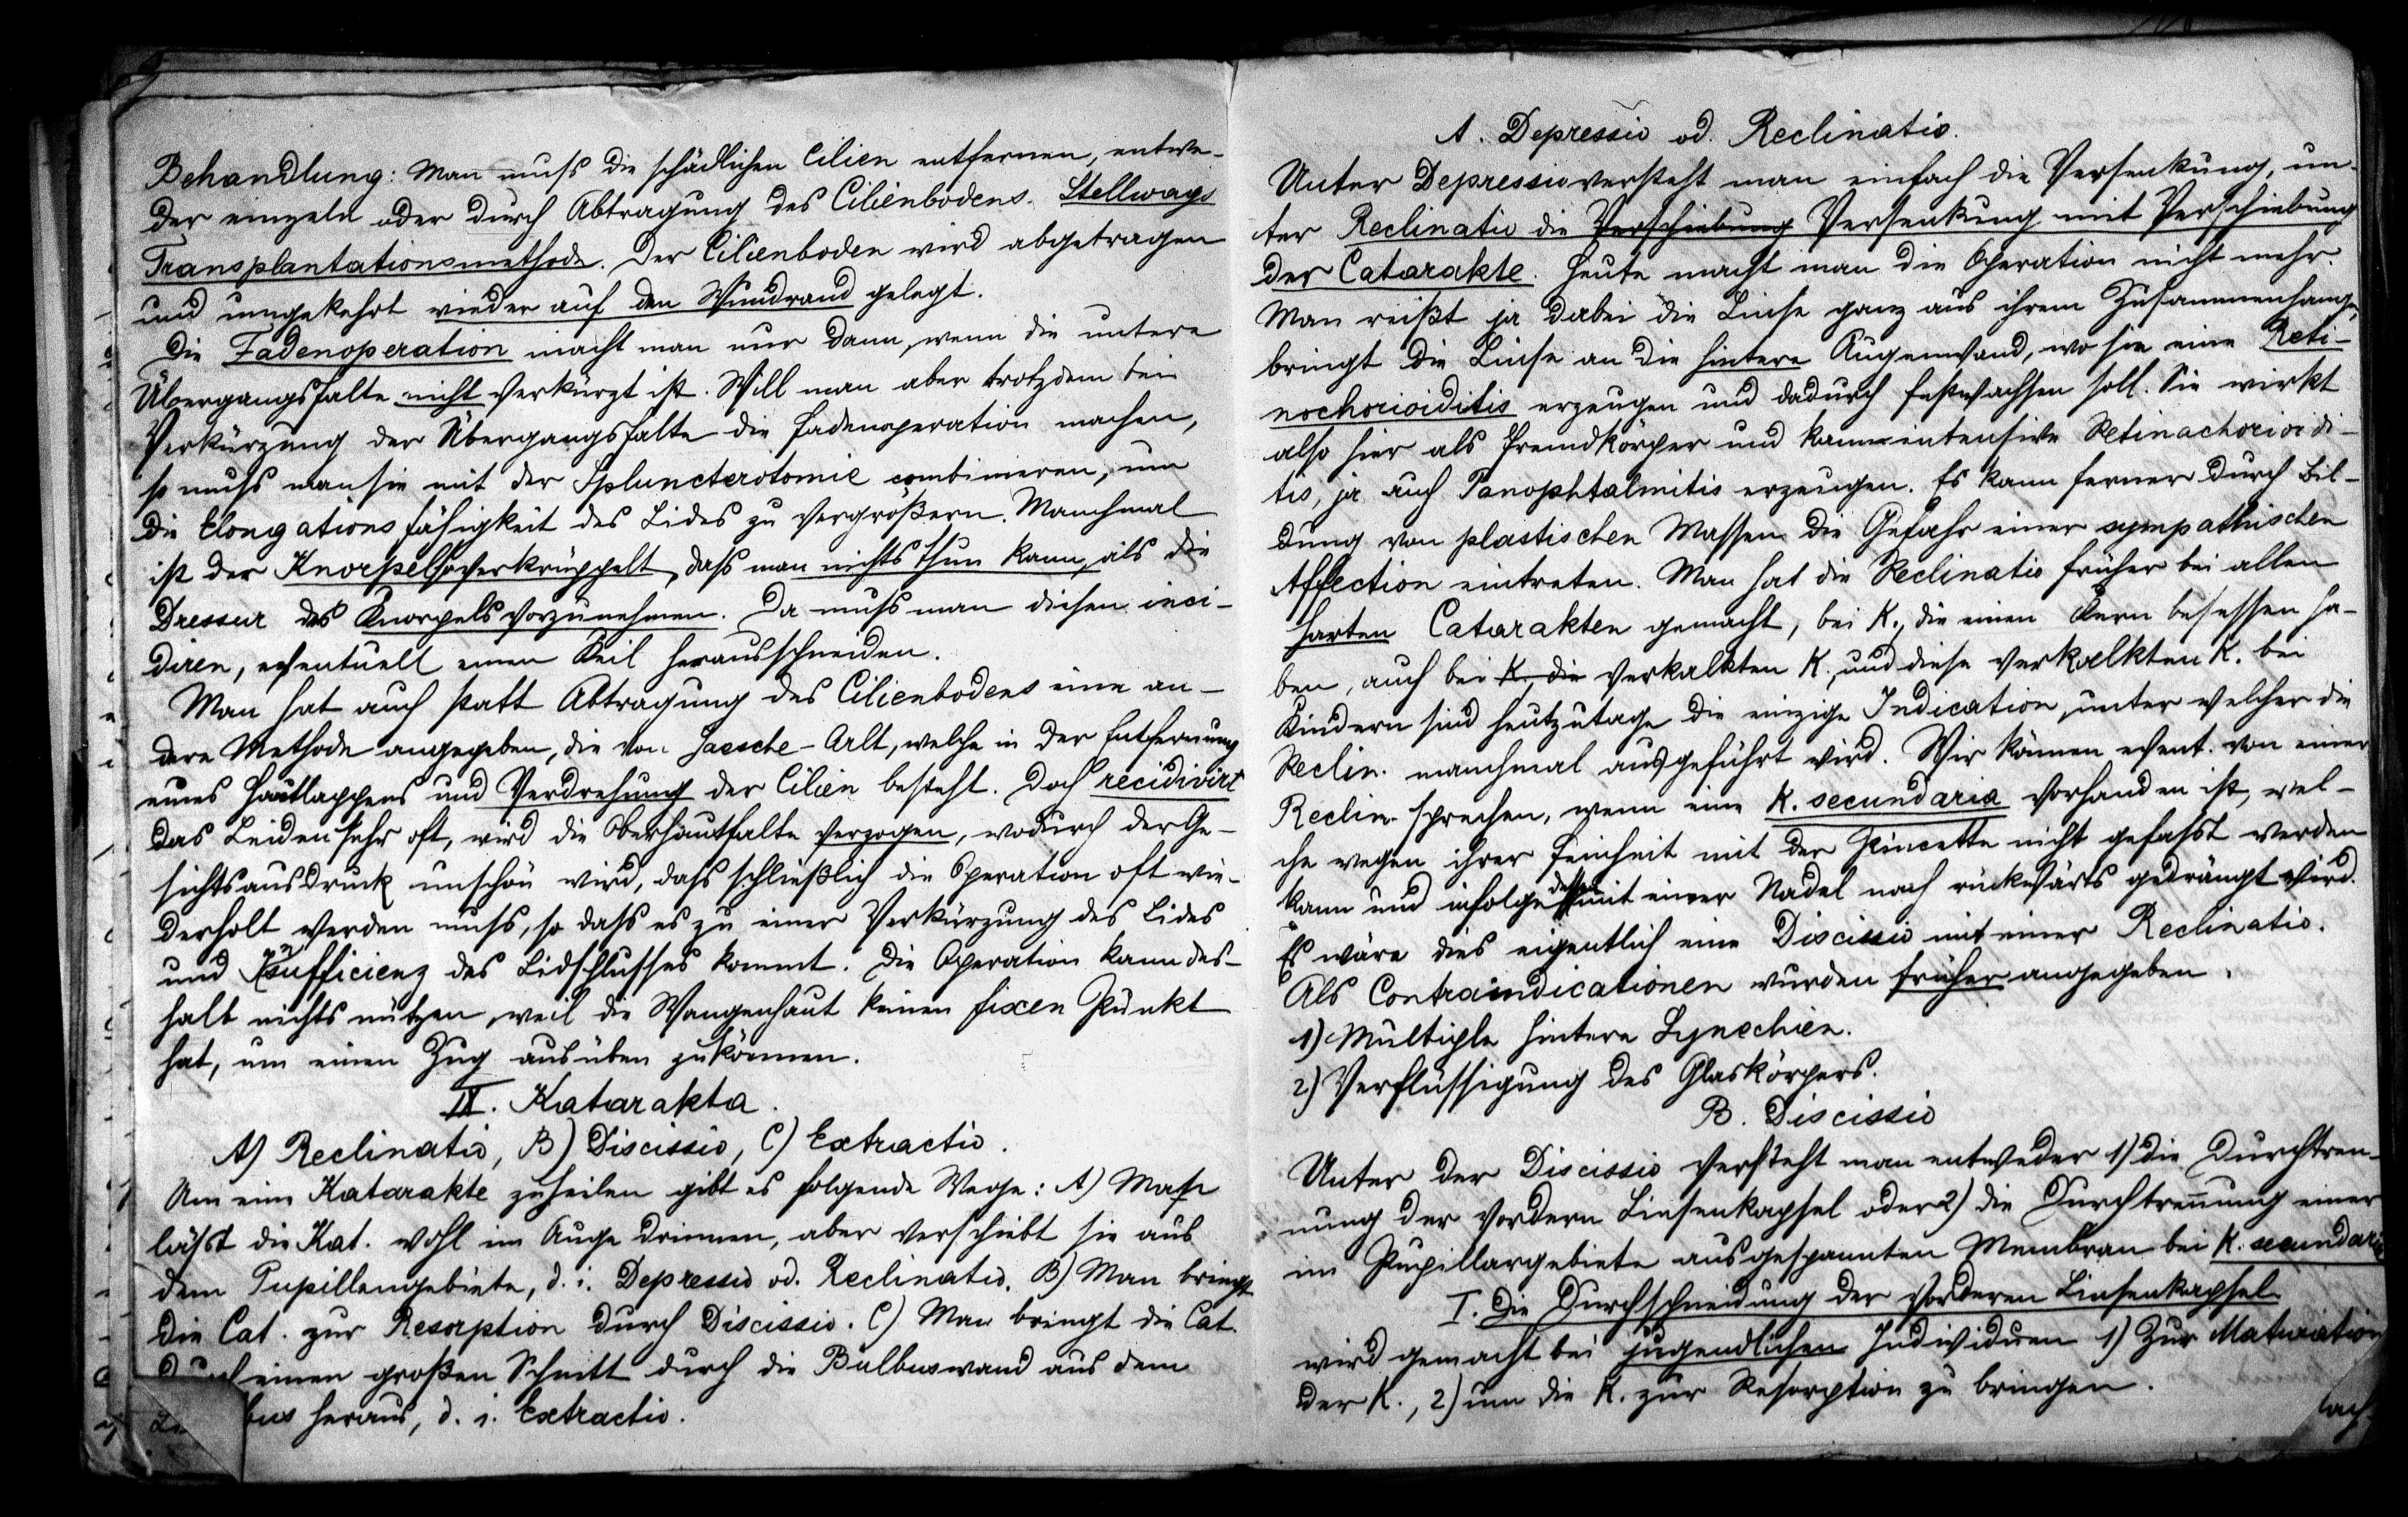 Behandlung: Man muss die schädlichen Cilien entfernen, entwe-
der einzeln oder durch Abtragung des Cilienbodens. Stellwags
Transplantationsmethode. Der Cilienboden wird abgetragen
und umgekehrt wieder auf den Wundrand gelegt.
Die Fadenoperation macht man nur dann, wenn die untere
Übergangsfalte nicht verkürzt ist. Will man aber trotzdem bei
Verkürzung der Übergangsfalte die Fadenoperation machen,
so muss man sie mit der Sphincterotomie combinieren, um
die Elongationsfähigkeit des Lides zu vergrößern. Manchmal
ist der Knorpel so verkrüppelt, dass man nichts thun kann, als die
Dressur des Knorpels vorzunehmen. Da muss man diesen inci-
diren, eventuell einen Keil herausschneiden.
Man hat auch statt Abtragung des Cilienbodens eine an-
dere Methode angegeben, die von Jaesche-Arlt, welche in der Entfernung
eines Hautlappens und Verdrehung der Cilien besteht. Doch recidivirt
das Leiden sehr oft, wird die Oberhautfalte verzogen, wodurch der Ge-
sichtsausdruck unschön wird, dass schließlich die Operation oft wie-
derholt werden muss, so dass es zu einer Verkürzung des Lides
und Insufficienz des Lidschlusses kommt. Die Operation kann des-
halb nichts nützen, weil die Wangenhaut keinen fixen Punkt
hat, um einen Zug ausüben zu können.
IV. Katarakta.
A) Reclinatio, B) Discissio, C) Extractio.
Um eine Katarakte zu heilen gibt es folgende Wege: A) Man
lässt die Kat. wohl im Auge drinnen, aber verschiebt sie aus
dem Pupillengebiete, d. i. Depressio od. Reclinatio. B) Man bringt
die Cat. zur Resorption durch Discissio. C) Man bringt die Cat.
durch einen großen Schnitt durch die Bulbuswand aus dem
bus heraus, d. i. Extractio.
A. Depressio od. Reclinatio.
Unter Depressio versteht man einfach die Versenkung, un-
ter Reclinatio die Verschiebung Versenkung mit Verschiebung
der Catarakte. Heute macht man die Operation nicht mehr.
Man reißt ja dabei die Linse ganz aus ihrem Zusammenhange,
bringt die Linse an die hintere Augenwand, wo sie eine Reti-
nochorioiditis erzeugen und dadurch festwachsen soll. Sie wirkt
also hier als Fremdkörper und kann intensive Retinochorioidi-
tis, ja auch Panophtalmitis erzeugen. Es kann ferner durch Bil-
dung von plastischen Massen die Gefahr einer sympathischen
Affection eintreten. Man hat die Reclinatio früher bei allen
harten Catarakten gemacht, bei K., die einen Kern besessen ha-
ben, auch bei K. die verkalkten K., und diese verkalkten K. bei
Kindern sind heutzutage die einzige Indication, unter welcher die
Reclin. manchmal ausgeführt wird. Wir können event. von einer
Reclin. sprechen, wenn eine K. secundaria vorhanden ist, wel-
che wegen ihrer Feinheit mit der Pincette nicht gefasst werden
kann und infolge dessen mit einer Nadel nach rückwärts gedrängt wird.
Es wäre dies eigentlich eine Discissio mit einer Reclinatio.
Als Contraindicationen wurden früher angegeben:
1) Multiple hintere Synechien.
2) Verflüssigung des Glaskörpers.
B. Discissio
Unter der Discissio versteht man entweder 1) die Durchtren-
nung der vordern Linsenkapsel oder 2) die Durchtrennung einer
im Pupillargebiete ausgespannten Membran bei K. secundaria
I. Die Durchschneidung der vorderen Linsenkapsel
wird gemacht bei jugendlichen Individuen 1) Zur Maturation
der K., 2) um die K. zur Resorption zu bringen.